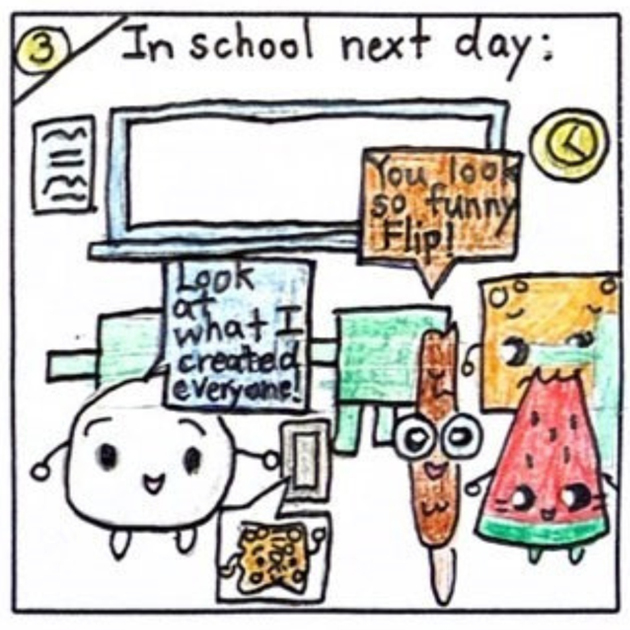 3
In school next day:
You look
so funny
Flip!
Look
at
what I
created
everyone!